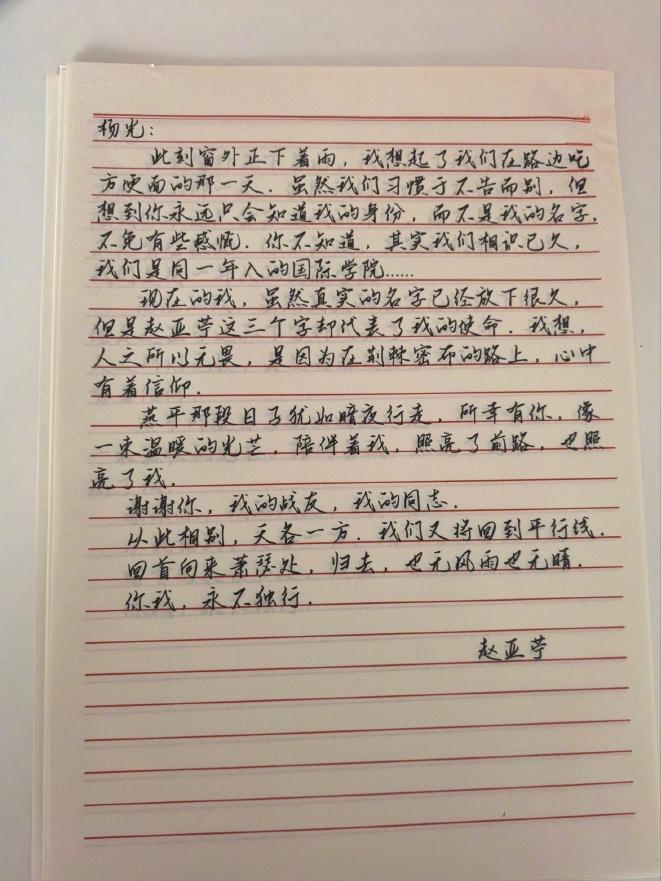 杨光：
此刻窗外正下着雨，我想起了我们在路边吃
方便面的那一天．虽然我们习惯于不告而别，但
想到你永远只会知道我的身份，而不是我的名字，
不免有些感慨．你不知道，其实我们相识已久，
我们是同一年入的国际学院……
现在的我，虽然真实的名字已经放下很久，
但是赵亚苧这三个字却代表了我的使命．我想，
人之所以无畏，是因为在荆棘密布的路上，心中
有着信仰．
燕平那段日子犹如暗夜行走，所幸有你，像
一束温暖的光芒，陪伴着我，照亮了前路，也照
亮了我．
谢谢你，我的战友，我的同志．
从此相别，天各一方．我们又将回到平行线．
回首向来萧瑟处，归去，也无风雨也无晴．
你我，永不独行．
赵亚苧